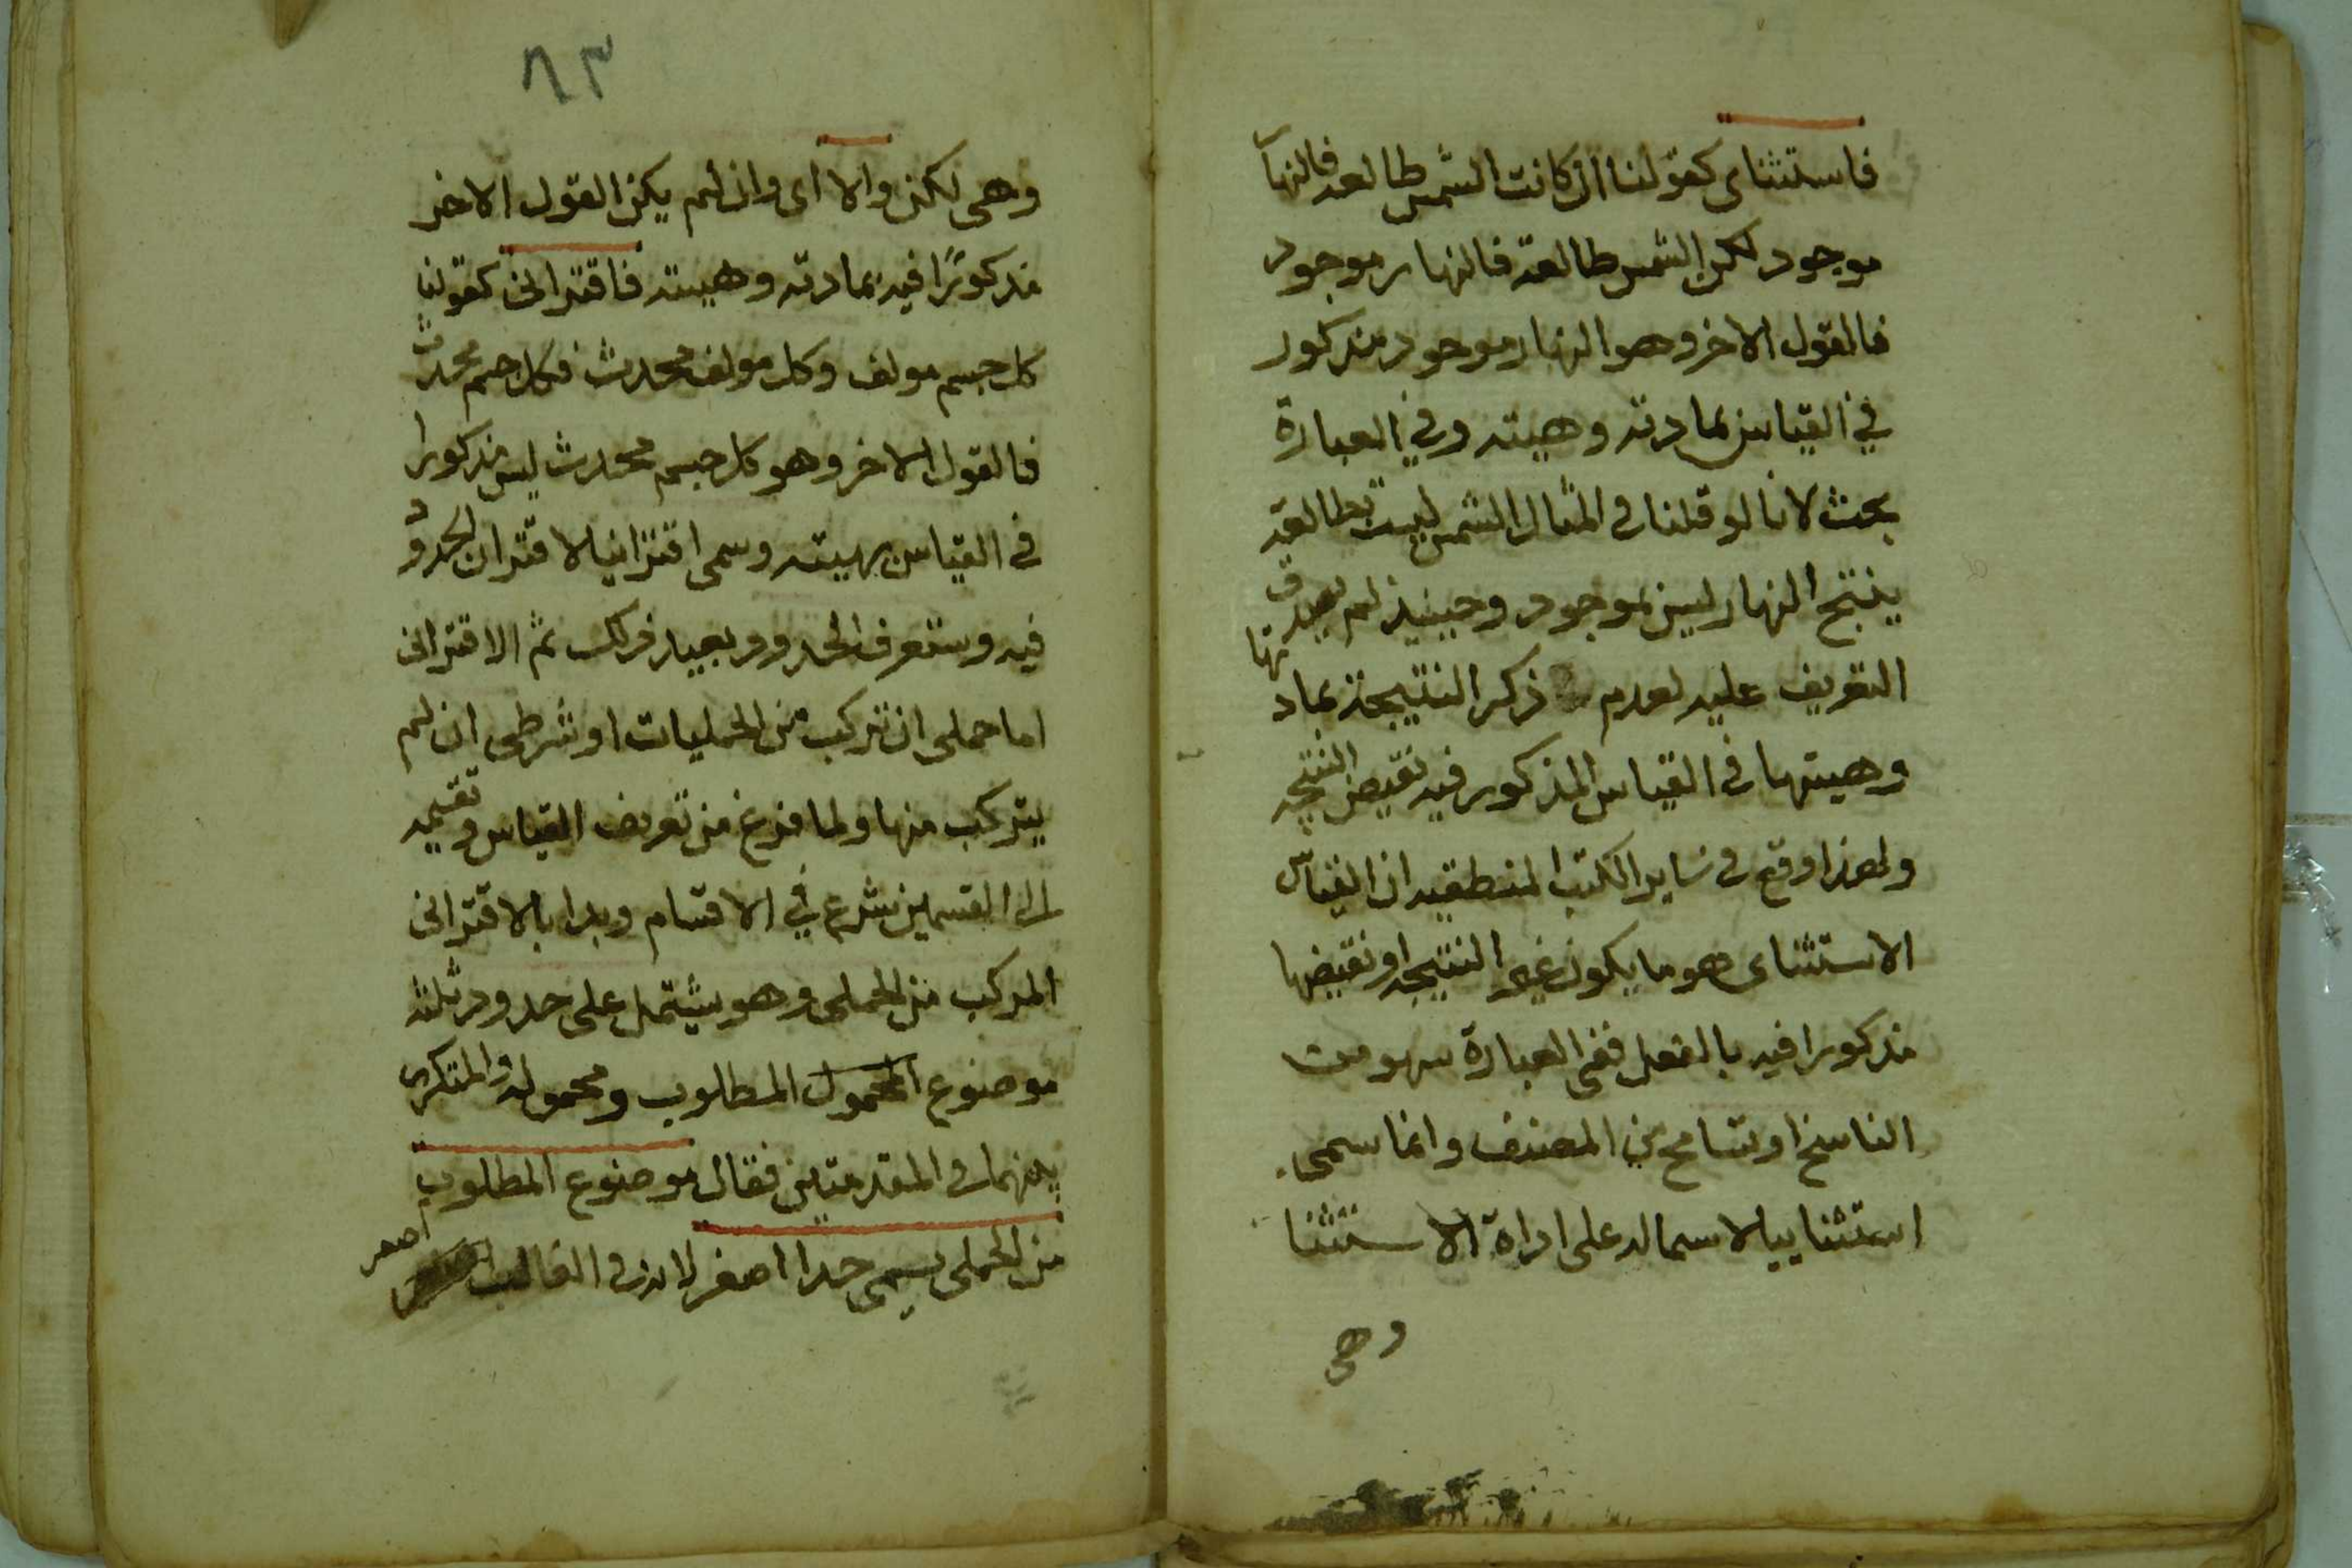 فاستثناى كقولنا ان كانت الشمس طالعه فالنها
موجود لكن الشمس طالعة فالنهار موجود
فالقول الاخر وهو النهار موجود مذكور
في القياس بمادته وهيته وفي العبارة
بحث لانا لو قلنا في المثال الشمس ليست بطالعة
ينتج النهار ليس بموجود وحينيذ لم يصدق
التعريف عليه لعدم ذكر النتيجة بمادتها
وهيتها في القياس المذكور فيه نقيض النتيجه
ولهذا وقع في ساير الكتب المنطقيه ان القياس
الاستثناى هو ما يكون عين النتيجه او نقيضها
مذكورا فيه بالفعل ففى العبارة سهو من
الناسخ او تسامح من المصنف وانما سمى
استثناييا لاشماله على اداة الاستثنا
وهى
٨٣
وهى لكن والا اى وان لم يكن القول الاخر
مذكورًا فيه بمادته وهيته فاقترانى كقولنا
كل جسم مولف وكل مولف محدث فكل جسم محدث
فالقول الاخر وهو كل جسم محدث ليس مذكورا
في القياس بهيته وسمى اقترانيا لاقتران الحدود
فيه وستعرف الحدود بعيد ذلك ثم الاقترانى
اما حملى ان تركب من الحمليات او شرطى ان لم
يتركب منها ولما فرغ من تعريف القياس وتقسيمه
الى القسمين شرع في الاقسام وبدا بالاقترانى
المركب من الحملى وهو يشتمل على حدود ثلثه
موضوع المحمول المطلوب ومحموله والمتكرر
بينهما في المقدمتين فقال موضوع المطلوب
من الحملى يسمى حدا اصغر لانه في الغالب اصغر